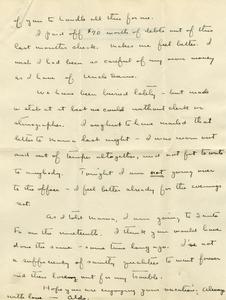 of you to handle all this for me.
I paid off $90 worth of debts out of this
last months check. Makes me feel better. I
wish I had been as careful of my own money
as I have of Uncle Sam's.
We have been buried lately - but made
a stab at it as best we could without clerk or
stenographer. I oughtn't to have mailed that
letter to Mama last night - I was worn out
and out of temper altogether, and not fit to write
to anybody. Tonight I am not going over
to the office - I feel better already for the evenings
rest.
As I told Mama, I am going to Santa
Fe on the nineteenth. I think you would have
done the same - some time long ago. I've not
a sufficiency of saintly qualities to work forever
and then looking out for my trouble.
Hope you are enjoying your vacation. Always
with love - Aldo.